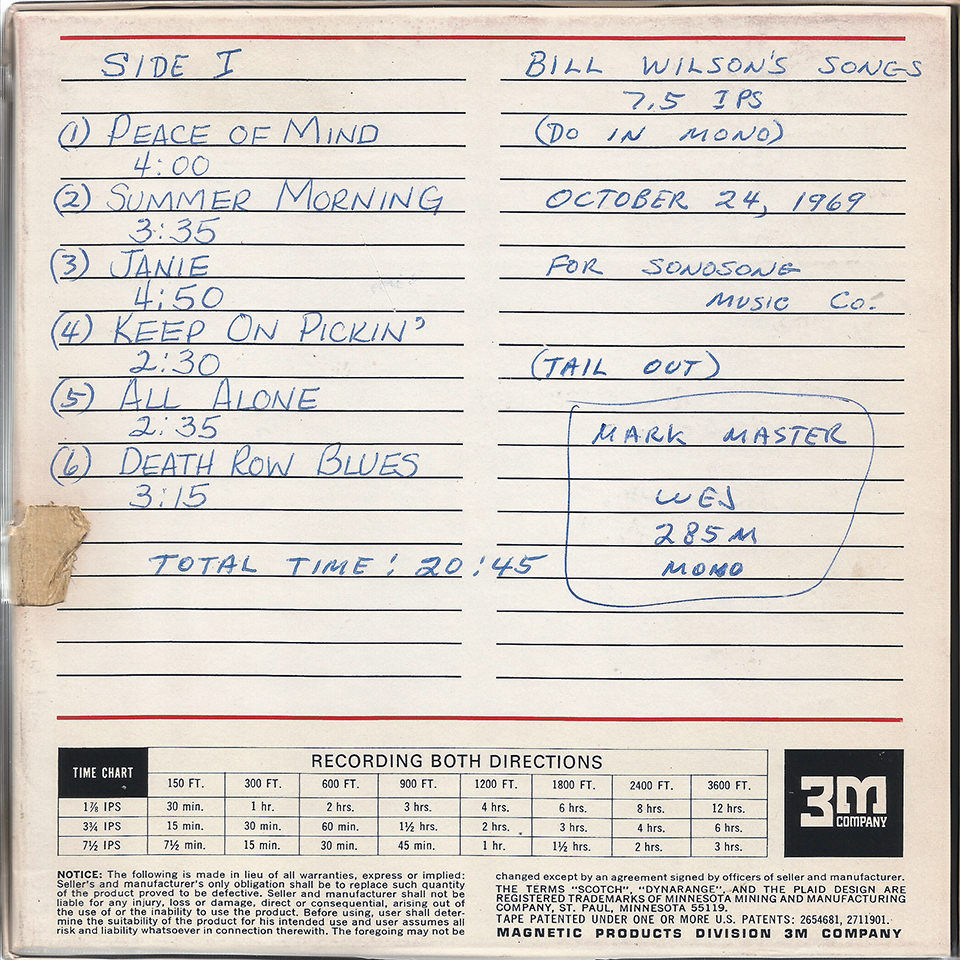 SIDE I
(1) PEACE OF MIND
4:00
(2) SUMMER MORNING
3:35
(3) JANIE
4:50
(4) KEEP ON PICKIN'
2:30
(5) ALL ALONE
2:35
(6) DEATH ROW BLUES
3:15
TOTAL TIME: 20:45
BILL WILSON'S SONGS
7.5 IPS
(DO IN MONO)
OCTOBER 24, 1969
FOR SONOSONG
MUSIC CO.
(TAIL OUT)
MARK MASTER
WEJ
285M
MONO
TIME CHART
RECORDING BOTH DIRECTIONS
150 FT. 300 FT. 600 FT. 900 FT. 1200 FT. 1800 FT. 2400 FT. 3600 FT.
1⅞ IPS 30 min. 1 hr. 2 hrs. 3 hrs. 4 hrs. 6 hrs. 8 hrs. 12 hrs.
3¾ IPS 15 min. 30 min. 60 min. 1½ hrs. 2 hrs. 3 hrs. 4 hrs. 6 hrs.
7½ IPS 7½ min. 15 min. 30 min. 45 min. 1 hr. 1½ hrs. 2 hrs. 3 hrs.
3M
COMPANY
NOTICE: The following is made in lieu of all warranties, express or implied:
Seller's and manufacturer's only obligation shall be to replace such quantity
of the product proved to be defective. Seller and manufacturer shall not be
liable for any injury, loss or damage, direct or consequential, arising out of
the use of or the inability to use the product. Before using, user shall deter-
mine the suitability of the product for his intended use and user assumes all
risk and liability whatsoever in connection therewith. The foregoing may not be
changed except by an agreement signed by officers of seller and manufacturer.
THE TERMS "SCOTCH", "DYNARANGE", AND THE PLAID DESIGN ARE
REGISTERED TRADEMARKS OF MINNESOTA MINING AND MANUFACTURING
COMPANY, ST. PAUL, MINNESOTA 55119.
TAPE PATENTED UNDER ONE OR MORE U.S. PATENTS: 2654681, 2711901.
MAGNETIC PRODUCTS DIVISION 3M COMPANY